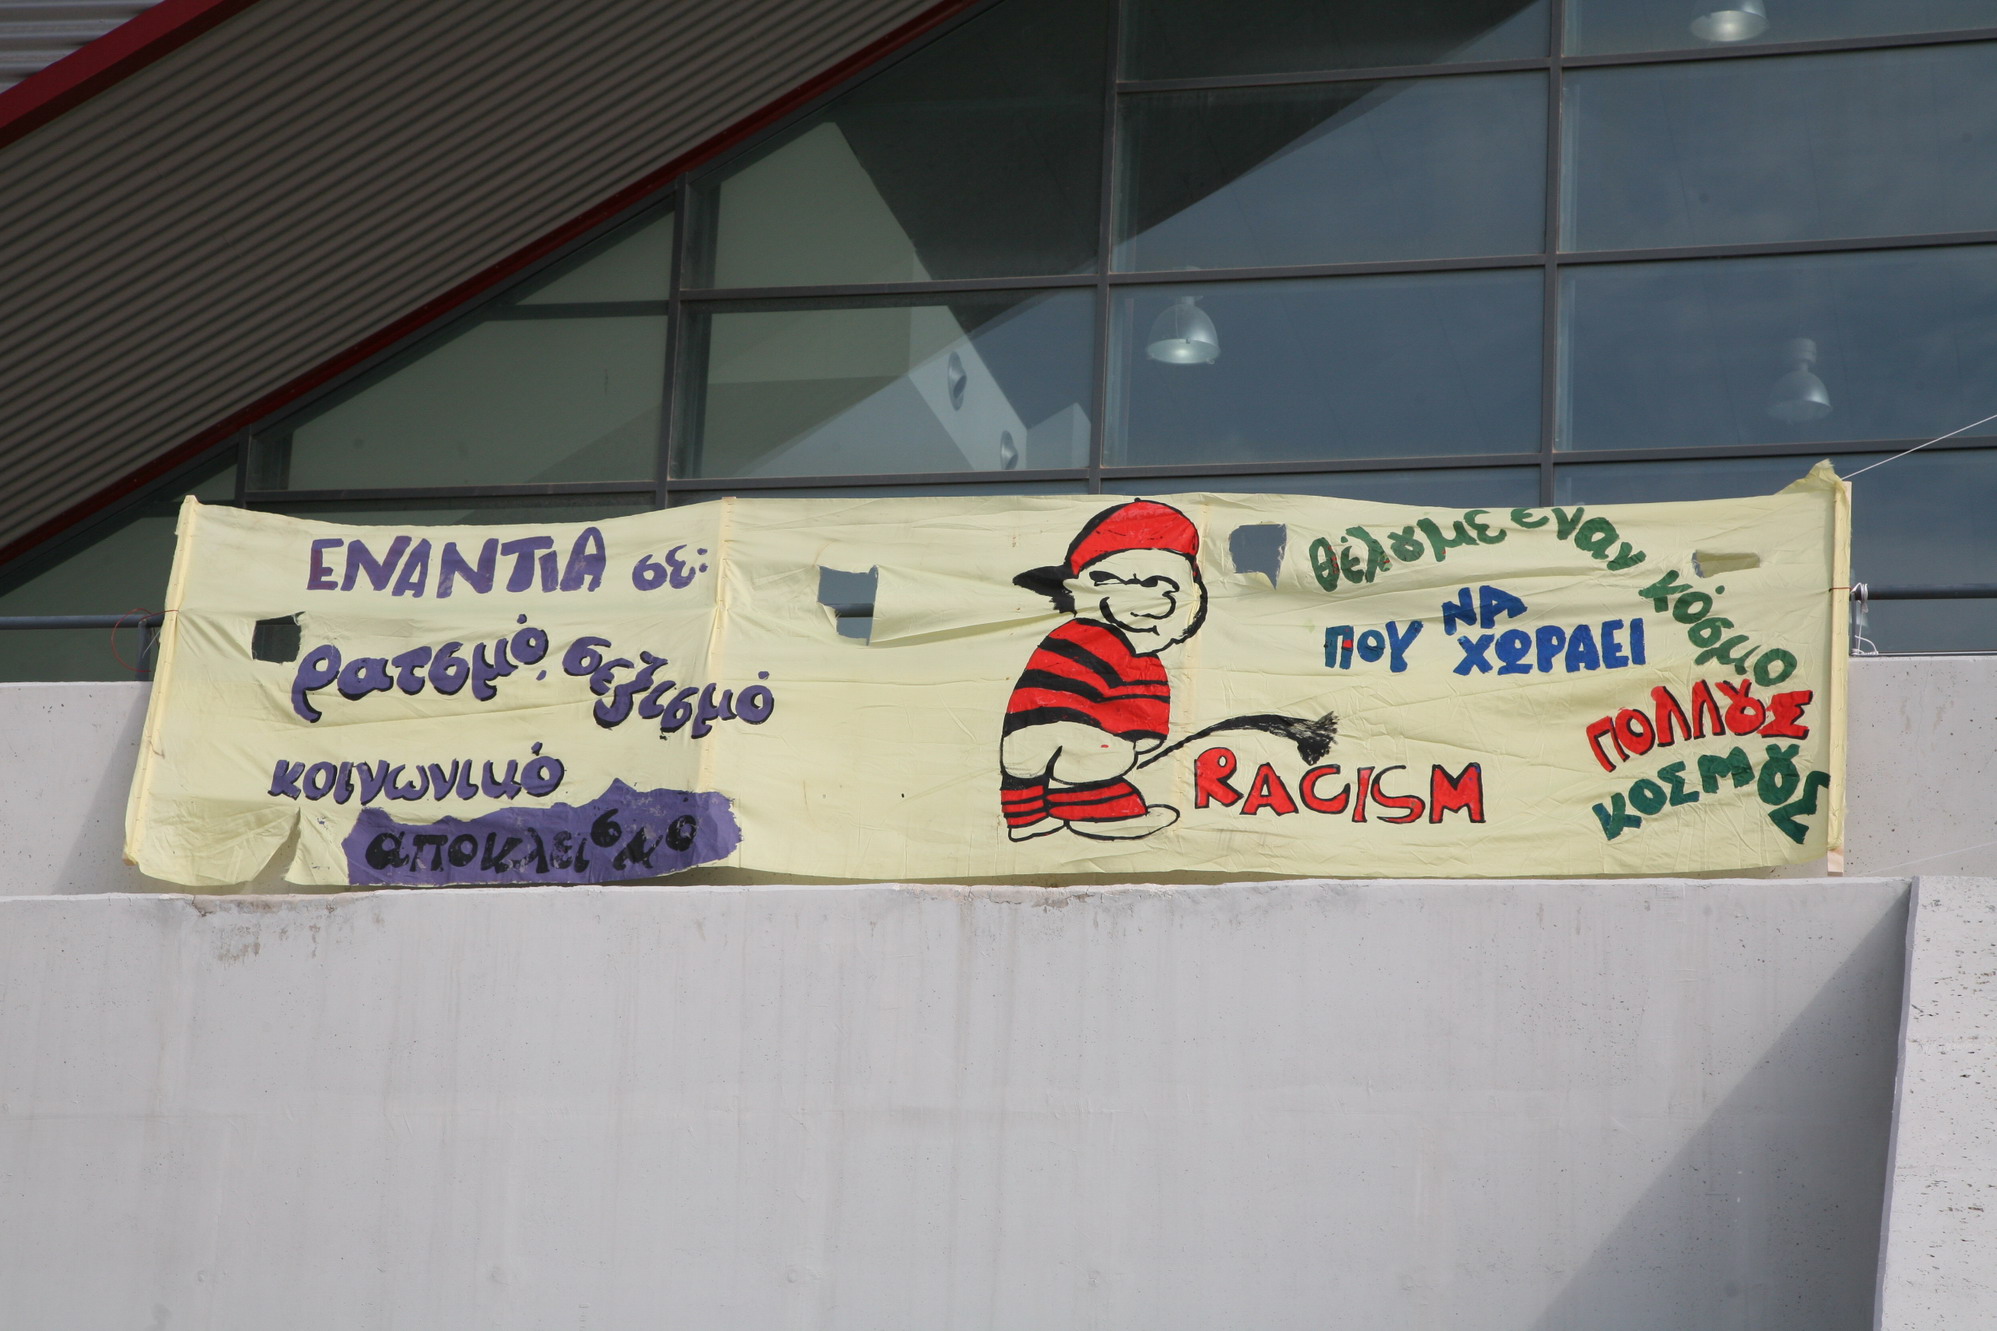 ΕΝΑΝΤΙΑ σε:
ρατσμό, σεξισμό
κοινωνικό
αποκλεισμό
RACISM
θέλουμε εναν κόσμο
που ΝΑ
ΧΩΡΑΕΙ
ΠΟΛΛΟΥΣ
ΚΟΣΜΟΥΣ